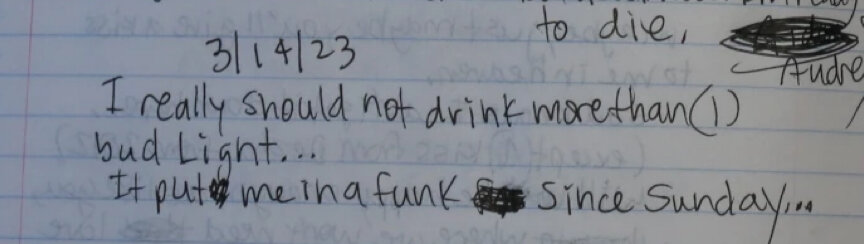 to die,
Audre
3/14/23
I really should not drink more than (1)
bud Light...
It put me in a funk since Sunday...